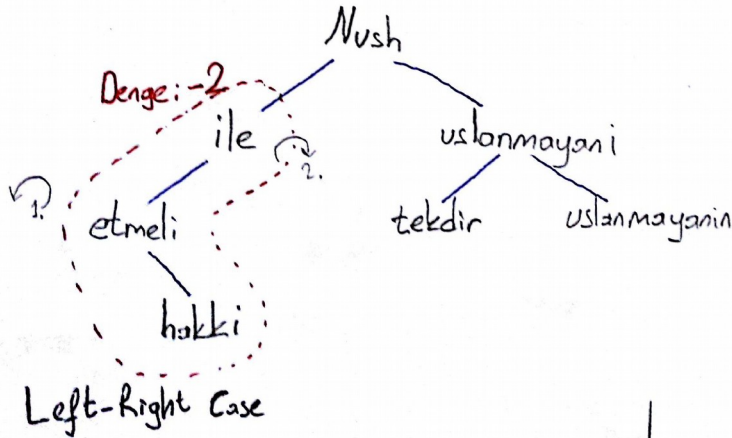 Nush
Denge: -2
ile
uslanmayani
1.
2.
etmeli
tekdir
uslanmayanin
hakki
Left-Right Case